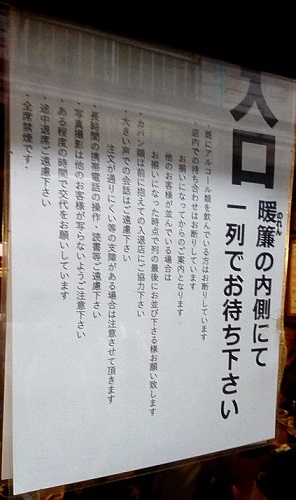 入口
暖簾の内側にて
のれん
一列でお待ち下さい
既にアルコール類を飲んでいる方はお断りしています
・店内での待ち合わせはお断りしています
お揃いになってからのご案内となります
他のお客様が並んでいる場合は
お揃いになった時点で列の最後にお並び下さる様お願い致します
・カバン類は前に抱えての入退店にご協力下さい
・大きい声での会話はご遠慮下さい
注文が通りにくい等の支障がある場合は注意させて頂きます
・長時間の携帯電話の操作・読書等ご遠慮下さい
・写真撮影は他のお客様が写らないようご注意下さい
・ある程度の時間で交代をお願いしています
・途中退席ご遠慮下さい
・全席禁煙です。